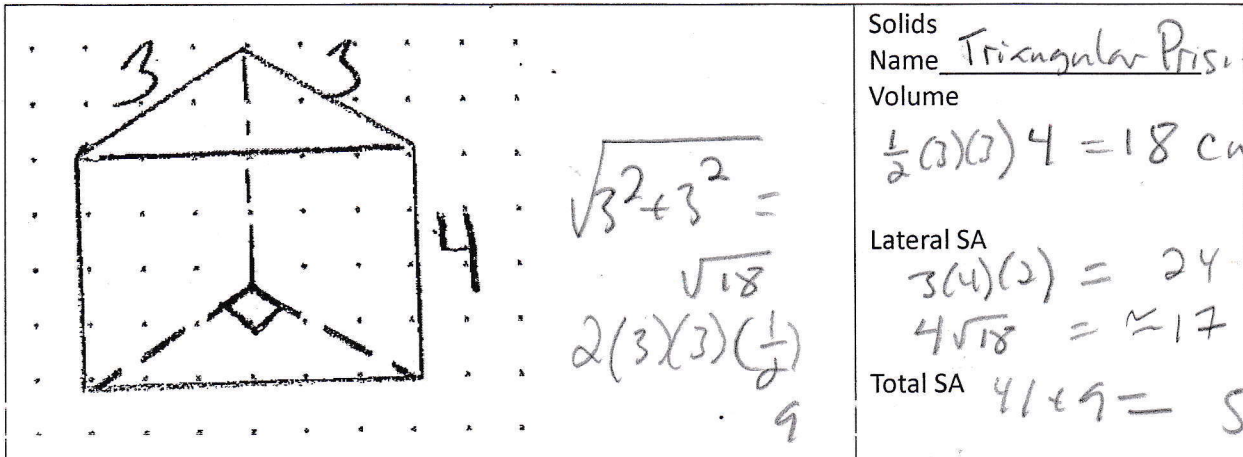 3 3
4
√3²+3² =
√18
2(3)(3)(1/2)
9
Solids
Name Triangular Pris
Volume
1/2 (3)(3) 4 = 18 c
Lateral SA
3(4)(2) = 24
4√18 = ≈17
Total SA 41+9 = 5